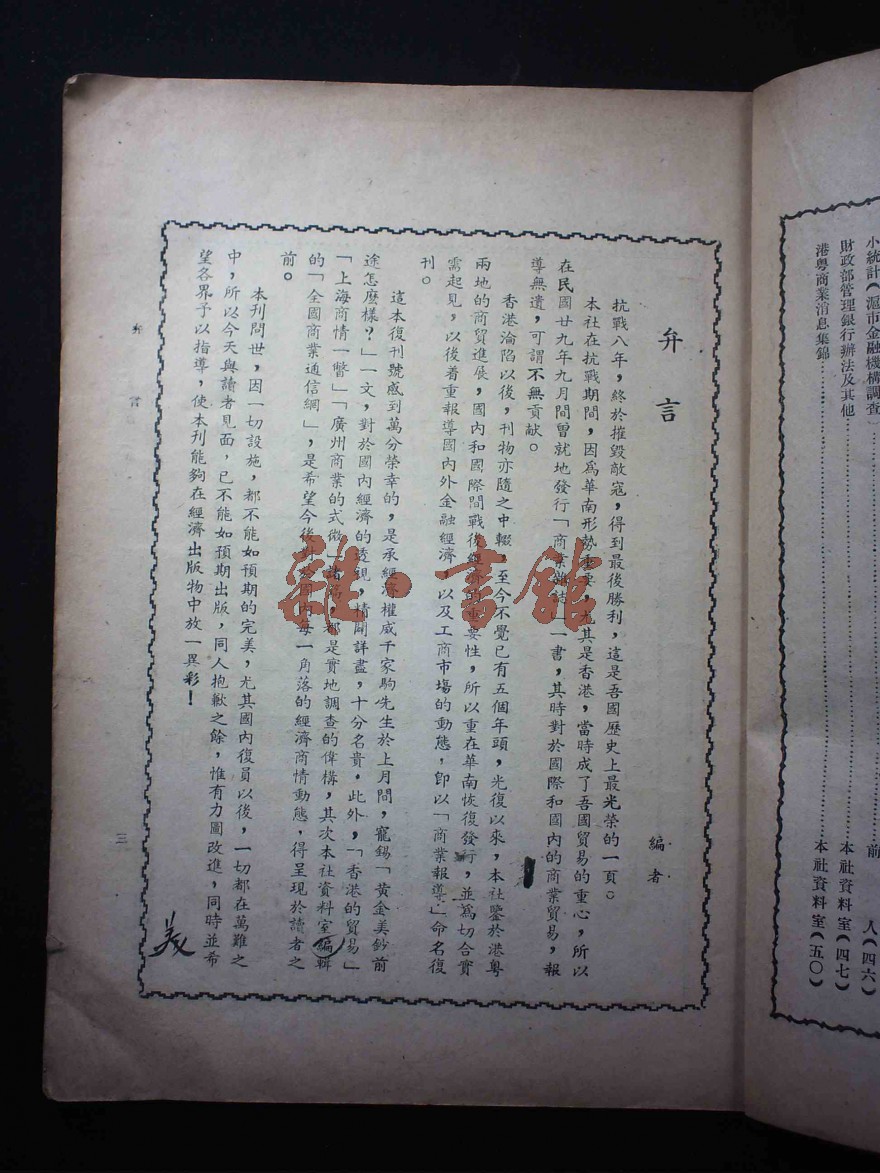 小統計（滬市金融機構調查
前 人（四六）
財政部管理銀行辦法及其他
本社資料室（四七）
港粵商業消息集錦
本社資料室（五〇）
弁言
編者
抗戰八年，終於摧毀敵寇，得到最後勝利，這是吾國歷史上最光榮的一頁。
本社在抗戰期間，因爲華南形勢重要，尤其是香港，當時成了吾國貿易的重心，所以
在民國廿九年九月間曾就地發行「商業雜誌」一書，其時對於國際和國內的商業貿易，報
導無遺，可謂不無貢獻。
香港淪陷以後，刊物亦隨之中輟，至今不覺已有五個年頭，光復以來，本社鑒於港粵
兩地的商貿進展，國內和國際間戰後經濟的重要性，所以重在華南恢復發行，並爲切合實
需起見，以後着重報導國內外金融經濟，以及工商市塲的動態，卽以「商業報導」命名復
刊。
這本復刊號感到萬分榮幸的，是承經濟權威千家駒先生於上月間，寵錫「黃金美鈔前
途怎麼樣？」一文，對於國內經濟的透視，精闢詳盡，十分名貴。此外，「香港的貿易」
「上海商情一瞥」「廣州商業的式微」諸篇，都是實地調查的偉構，其次本社資料室編輯
的「全國商業通信網」，是希望今後對於國內每一角落的經濟商情動態，得呈現於讀者之
前。
本刊問世，因一切設施，都不能如預期的完美，尤其國內復員以後，一切都在萬難之
中，所以今天與讀者見面，已不能如預期出版，同人抱歉之餘，惟有力圖改進，同時並希
望各界予以指導，使本刊能夠在經濟出版物中放一異彩！
弁言
三
雜·書館